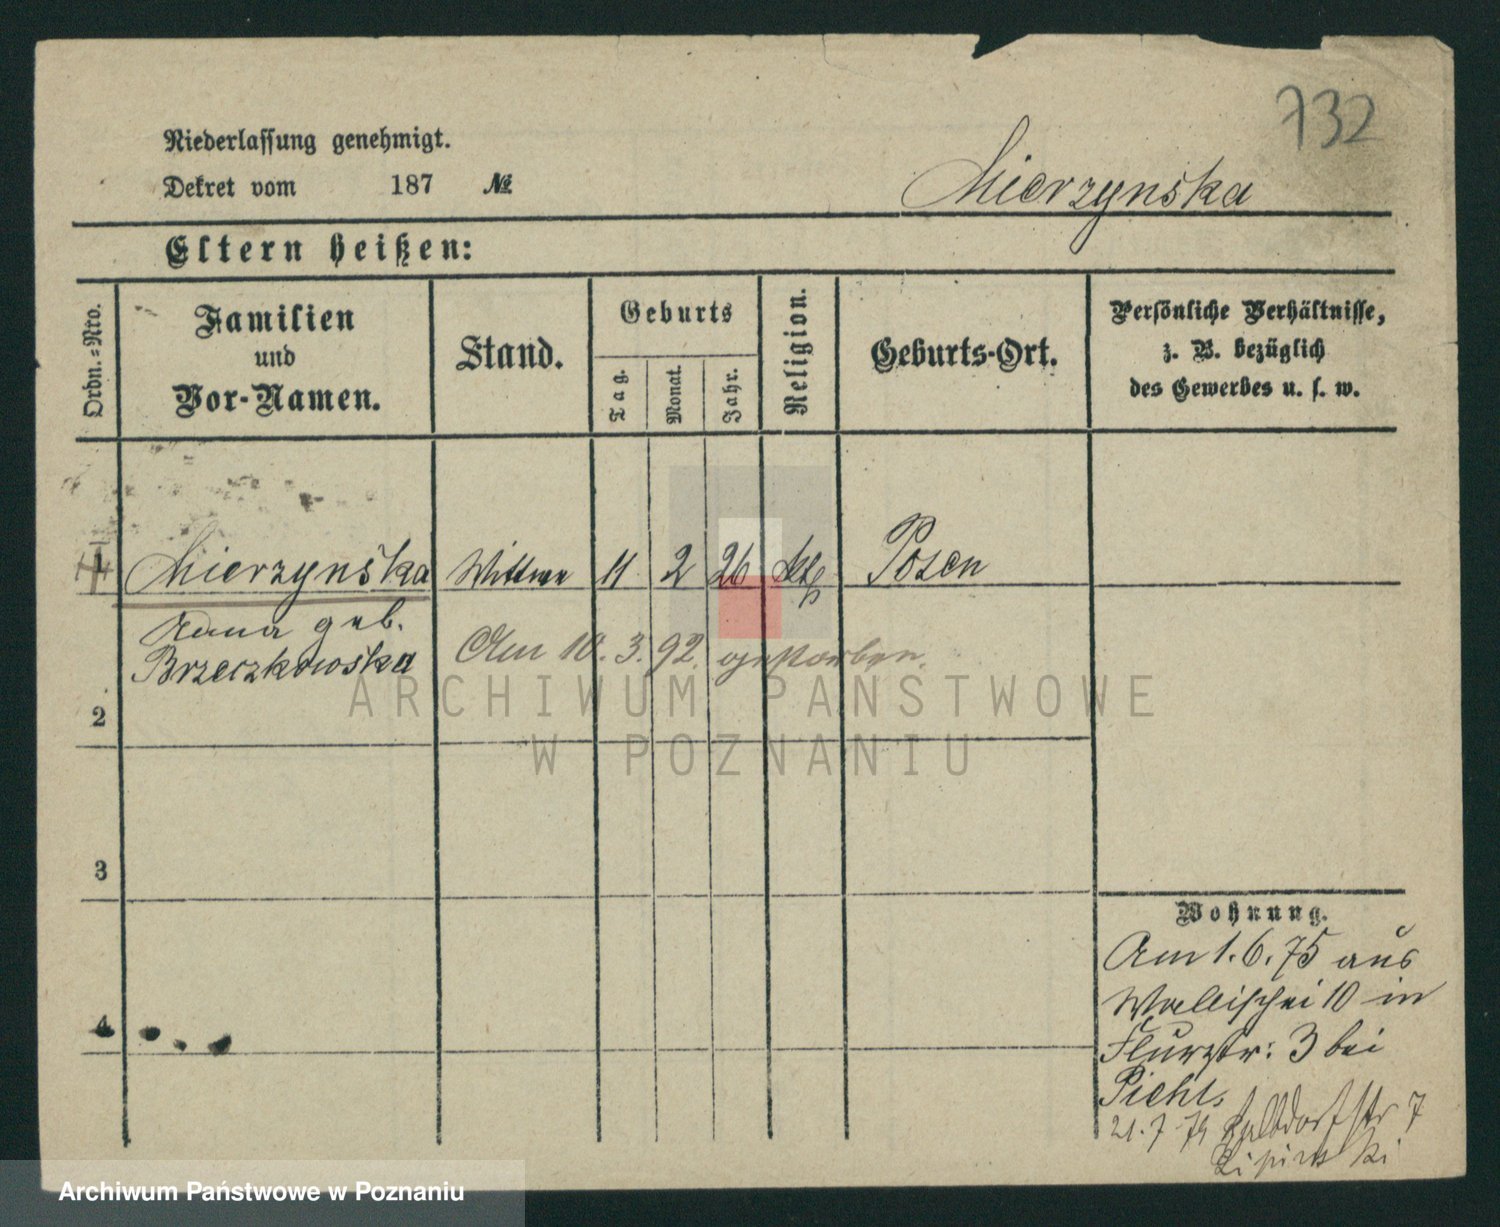 732
Niederlassung genehmigt.
Dekret vom 187 №
Mierzynska
Eltern heißen:
Ordn.=Nro.
Familien
und
Vor-Namen.
Stand.
Geburts
Tag.
Monat.
Jahr.
Religion.
Geburts-Ort.
Persönliche Verhältnisse,
z. B. bezüglich
des Gewerbes u. s. w.
1 Mierzynska Wittwe 11 2 26 kth Posen
Anna geb.
Brzeczkowska
Am 10. 3. 92. gestorben.
2
3
4
Wohnung.
Am 1. 6. 75 aus
Wallischei 10 in
Flurstr: 3 bei
Piehl,
21. 7 79 Halbdorfstr 7
Lipinski
ARCHIWUM PAŃSTWOWE
W POZNANIU
Archiwum Państwowe w Poznaniu